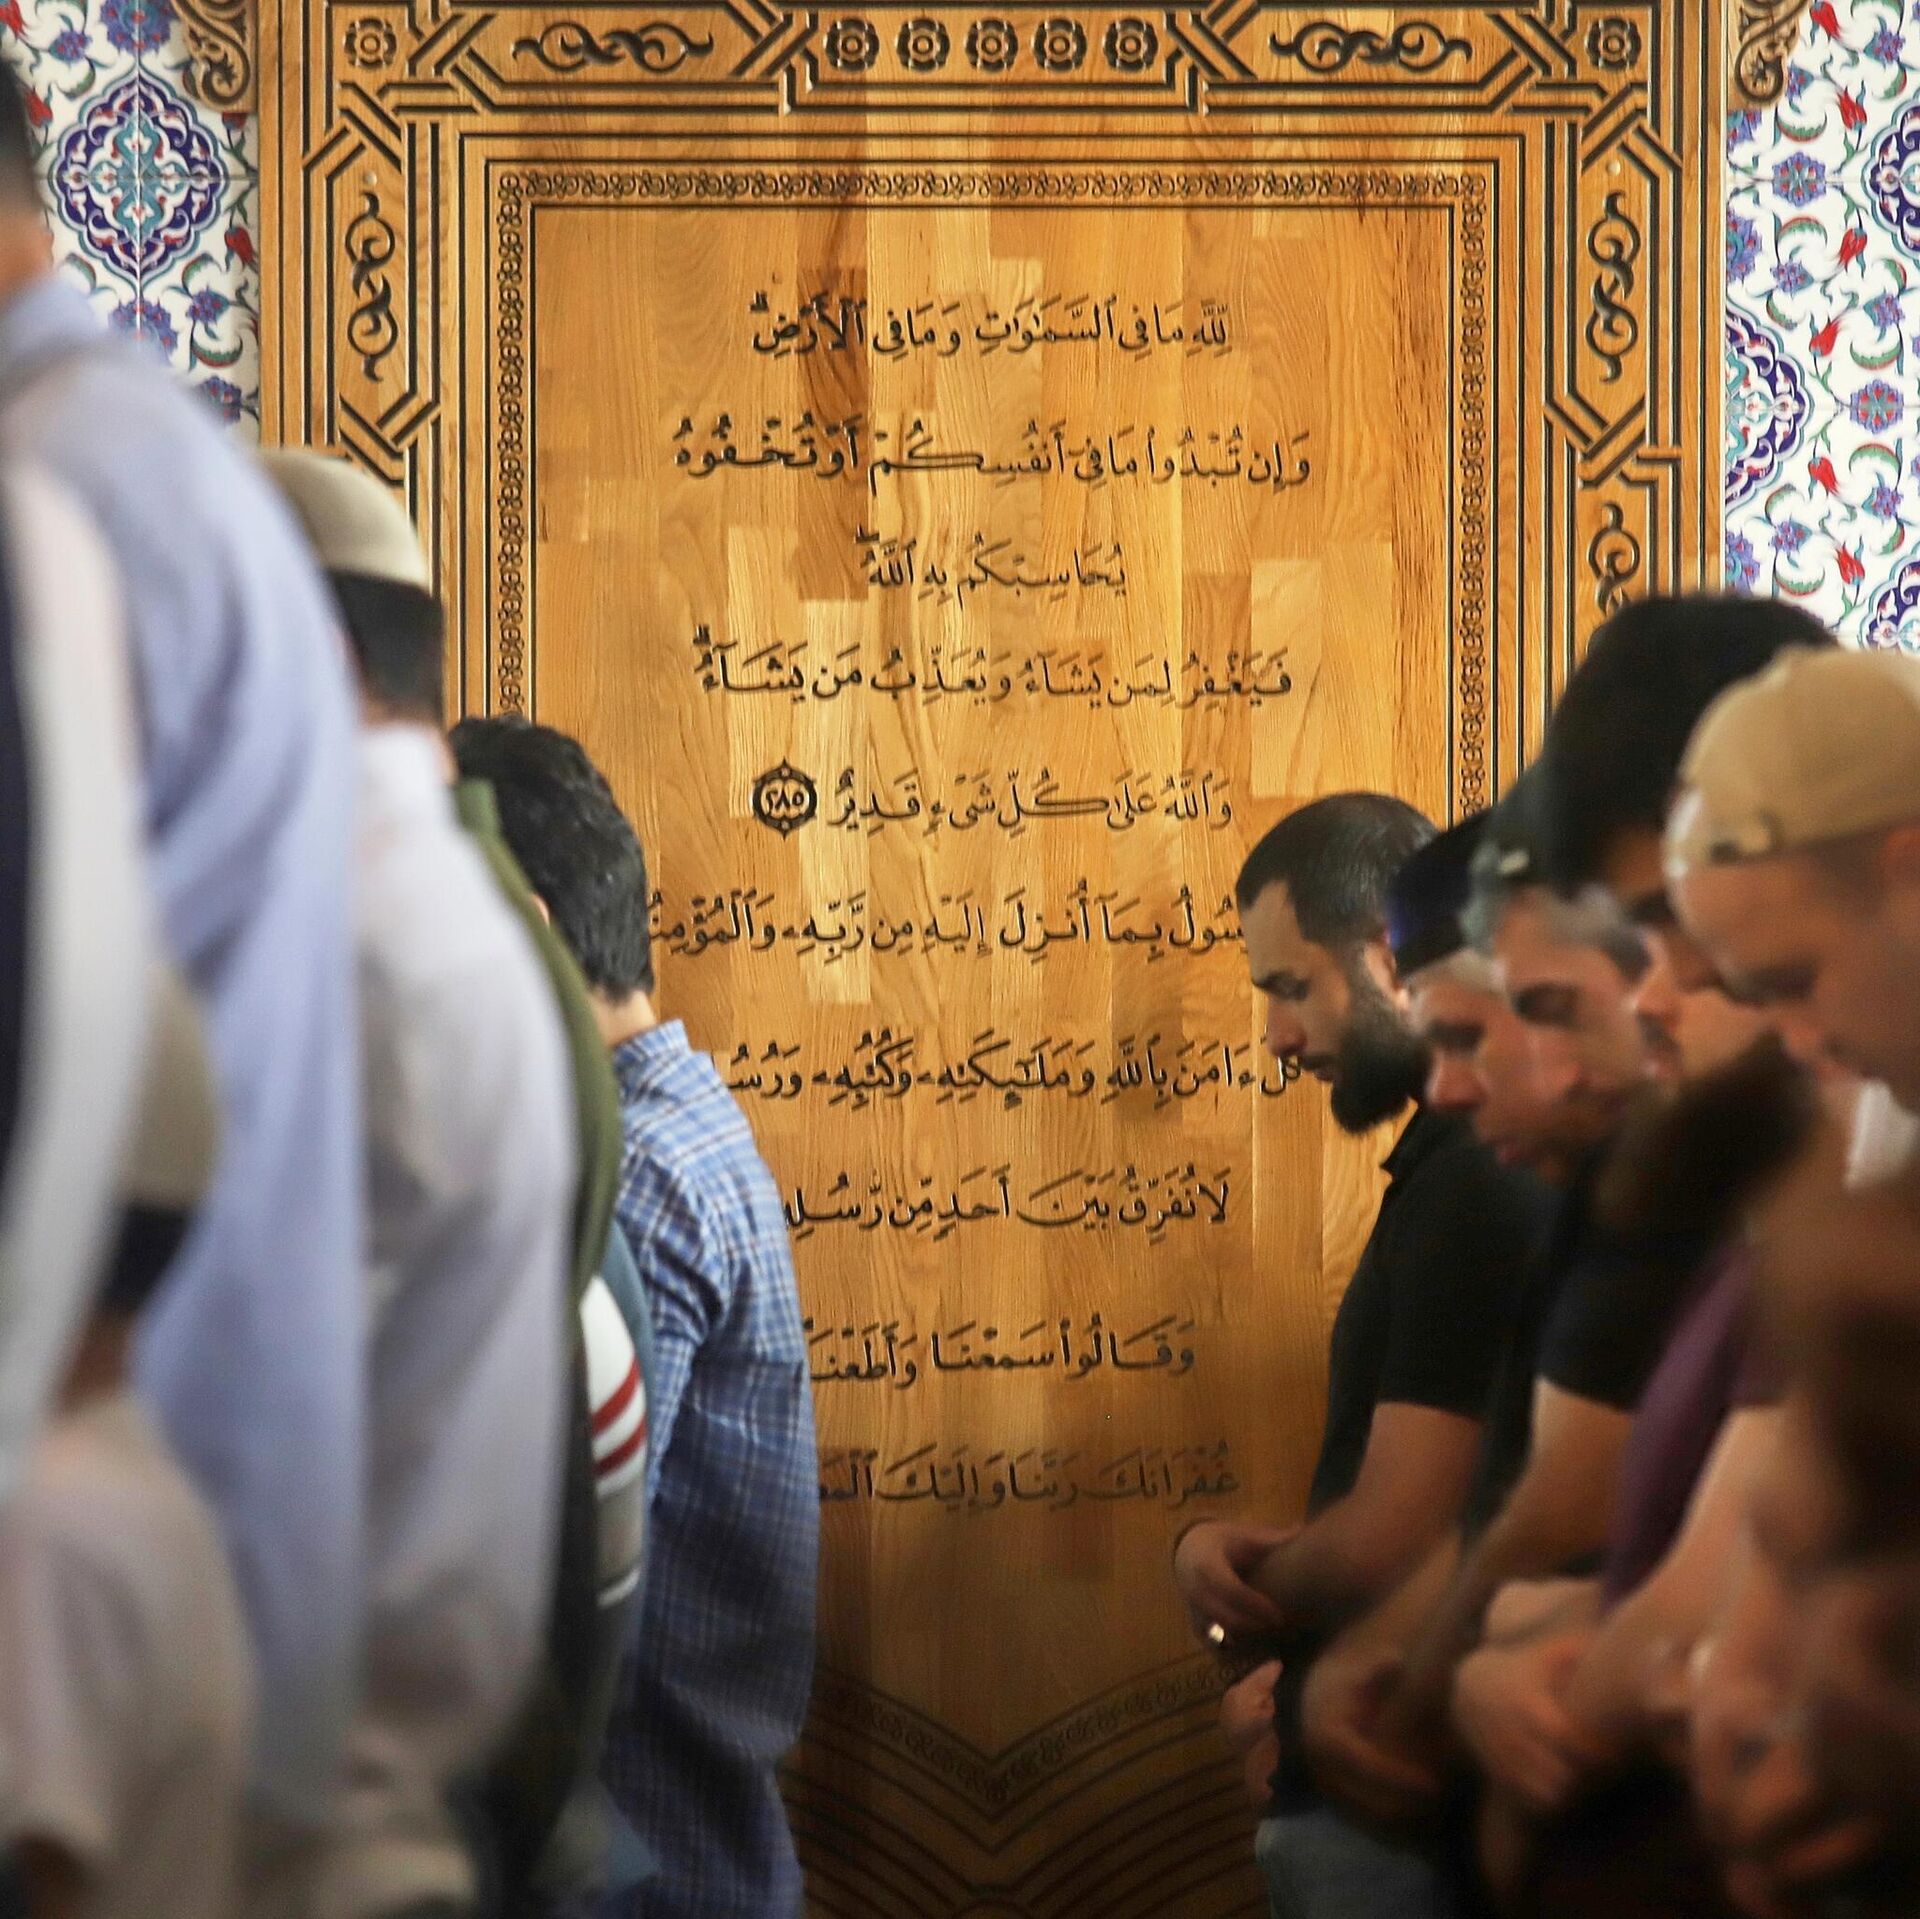 لِّلَّهِ مَا فِي ٱلسَّمَٰوَٰتِ وَمَا فِي ٱلْأَرْضِۗ
وَإِن تُبْدُوا۟ مَا فِيٓ أَنفُسِكُمْ أَوْ تُخْفُوهُ
يُحَاسِبْكُم بِهِ ٱللَّهُۖ
فَيَغْفِرُ لِمَن يَشَآءُ وَيُعَذِّبُ مَن يَشَآءُۗ
وَٱللَّهُ عَلَىٰ كُلِّ شَىْءٍ قَدِيرٌ ٢٨٥
سُولُ بِمَآ أُنزِلَ إِلَيْهِ مِن رَّبِّهِۦ وَٱلْمُؤْمِنُ
كُلٌّ ءَامَنَ بِٱللَّهِ وَمَلَٰٓئِكَتِهِۦ وَكُتُبِهِۦ وَرُسُ
لَا نُفَرِّقُ بَيْنَ أَحَدٍ مِّن رُّسُلِهِ
وَقَالُوا۟ سَمِعْنَا وَأَطَعْنَا
غُفْرَانَكَ رَبَّنَا وَإِلَيْكَ ٱلْمَ